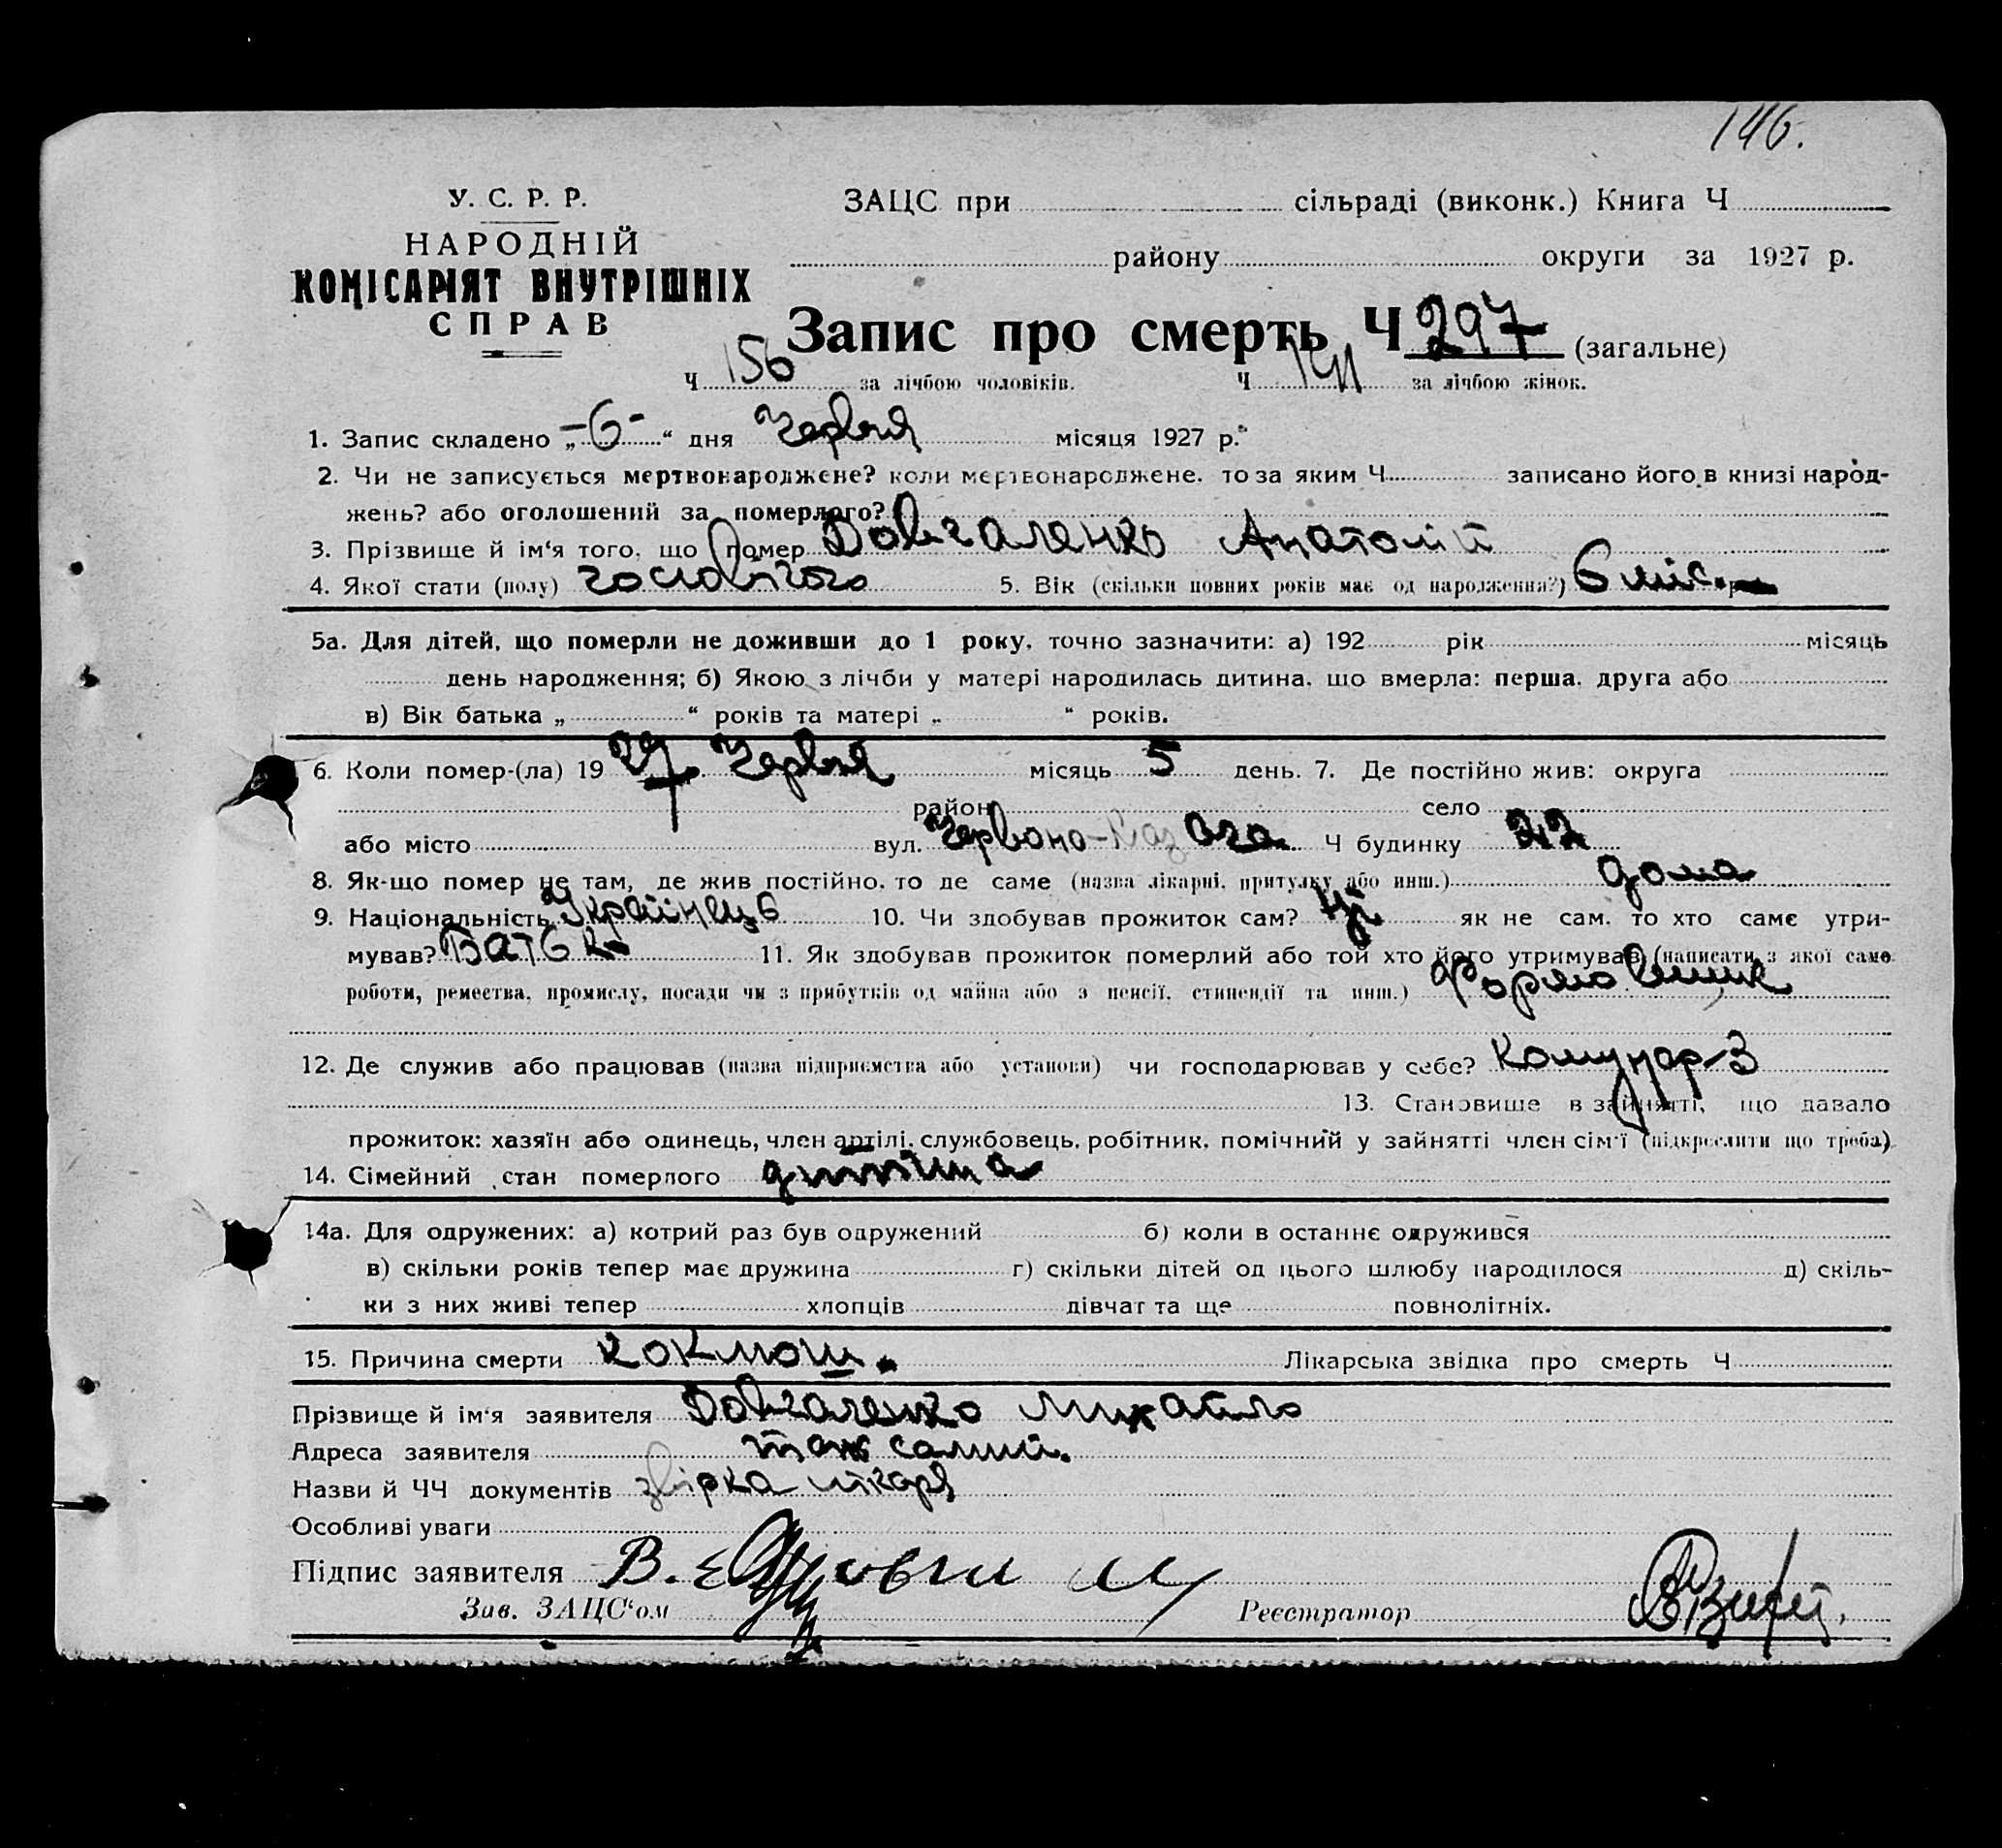 146.
У. С. Р. Р.
НАРОДНІЙ
КОМІСАРІЯТ ВНУТРІШНІХ
СПРАВ
ЗАЦС при сільраді (виконк.) Книга Ч
району округи за 1927 р.
Запис про смерть Ч 297 (загальне)
Ч 156 за лічбою чоловіків. Ч 141 за лічбою жінок.
1. Запис складено „-6-“ дня Червня місяця 1927 р.
2. Чи не записується мертвонароджене? коли мертвонароджене, то за яким Ч записано його в книзі народ-
жень? або оголошений за померлого?
3. Прізвище й ім‘я того, що помер Довгаленко Анатолій
4. Якої стати (полу) чоловічого 5. Вік (скільки повних років має од народження?) 6 міс.
5а. Для дітей, що померли не доживши до 1 року, точно зазначити: а) 192 рік місяць
день народження; б) Якою з лічби у матері народилась дитина, що вмерла: перша, друга або
в) Вік батька „ “ років та матері „ “ років.
6. Коли помер-(ла) 19 27 Червня місяць 5 день. 7. Де постійно жив: округа
район село
або місто вул. Червоно-Казача Ч будинку 22
8. Як-що помер не там, де жив постійно, то де саме (назва лікарні, притулку або инш.) дома
9. Національність Українець 10. Чи здобував прожиток сам? Ні як не сам, то хто саме утри-
мував? Батько 11. Як здобував прожиток померлий або той хто його утримував (написати з якої саме
роботи, ремества, промислу, посади чи з прибутків од майна або з пенсії, стипендії та инш.) Формовщик
12. Де служив або працював (назва підприємства або установи) чи господарював у себе? Комунар-З
13. Становище в зайнятті, що давало
прожиток: хазяїн або одинець, член артілі, службовець, робітник, помічний у зайнятті член сім‘ї (підкреслити що треба)
14. Сімейний стан померлого дитина
14а. Для одружених: а) котрий раз був одружений б) коли в останнє одружився
в) скільки років тепер має дружина г) скільки дітей од цього шлюбу народилося д) скіль-
ки з них живі тепер хлопців дівчат та ще повнолітніх.
15. Причина смерти коклюш. Лікарська звідка про смерть Ч
Прізвище й ім‘я заявителя Довгаленко Михайло
Адреса заявителя той самий.
Назви й ЧЧ документів лікаря
Особливі уваги
Підпис заявителя
Зав. ЗАЦС‘ом Реєстратор